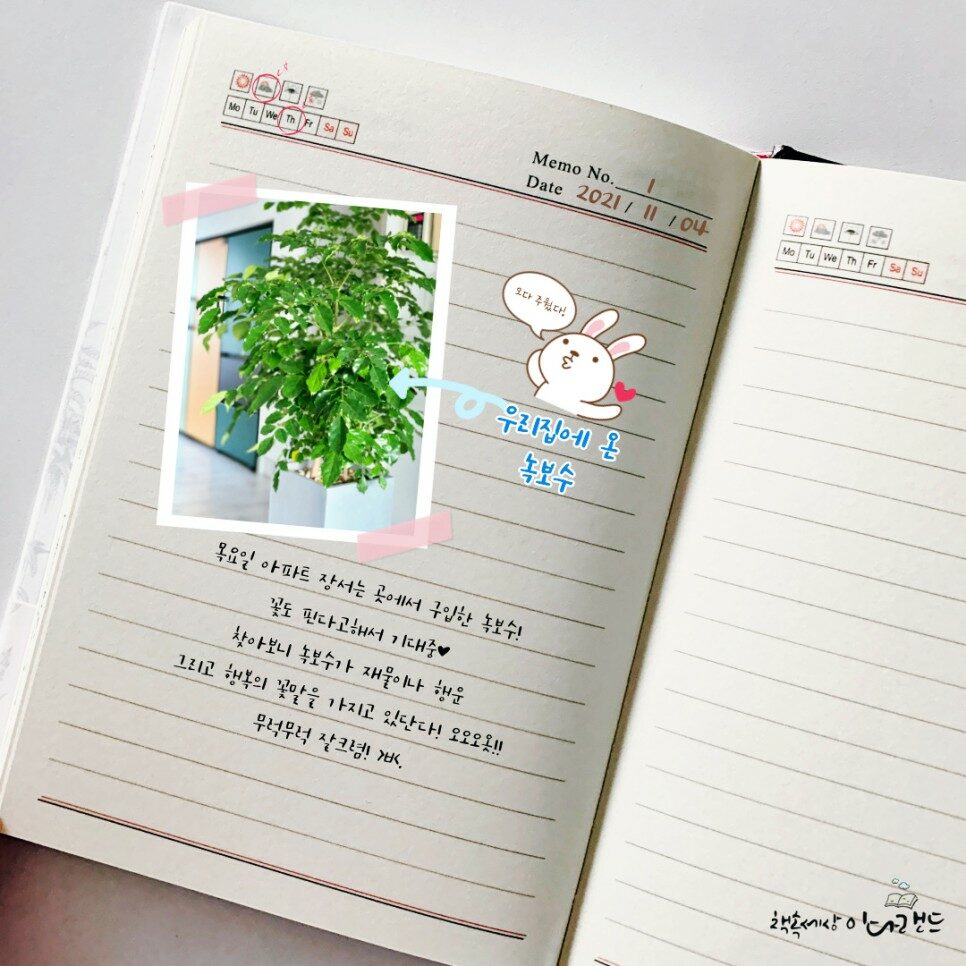 Mo Tu We Th Fr Sa Su
Memo No. 1
Date 2021 / 11 / 04
오다 주웠다!
우리집에 온
녹보수
목요일 아파트 장서는 곳에서 구입한 녹보수!
꽃도 핀다고해서 기대중♥
찾아보니 녹보수가 재물이나 행운
그리고 행복의 꽃말을 가지고 있단다! 오오오옷!!
무럭무럭 잘크렴!
Mo Tu We Th Fr Sa Su
책속세상